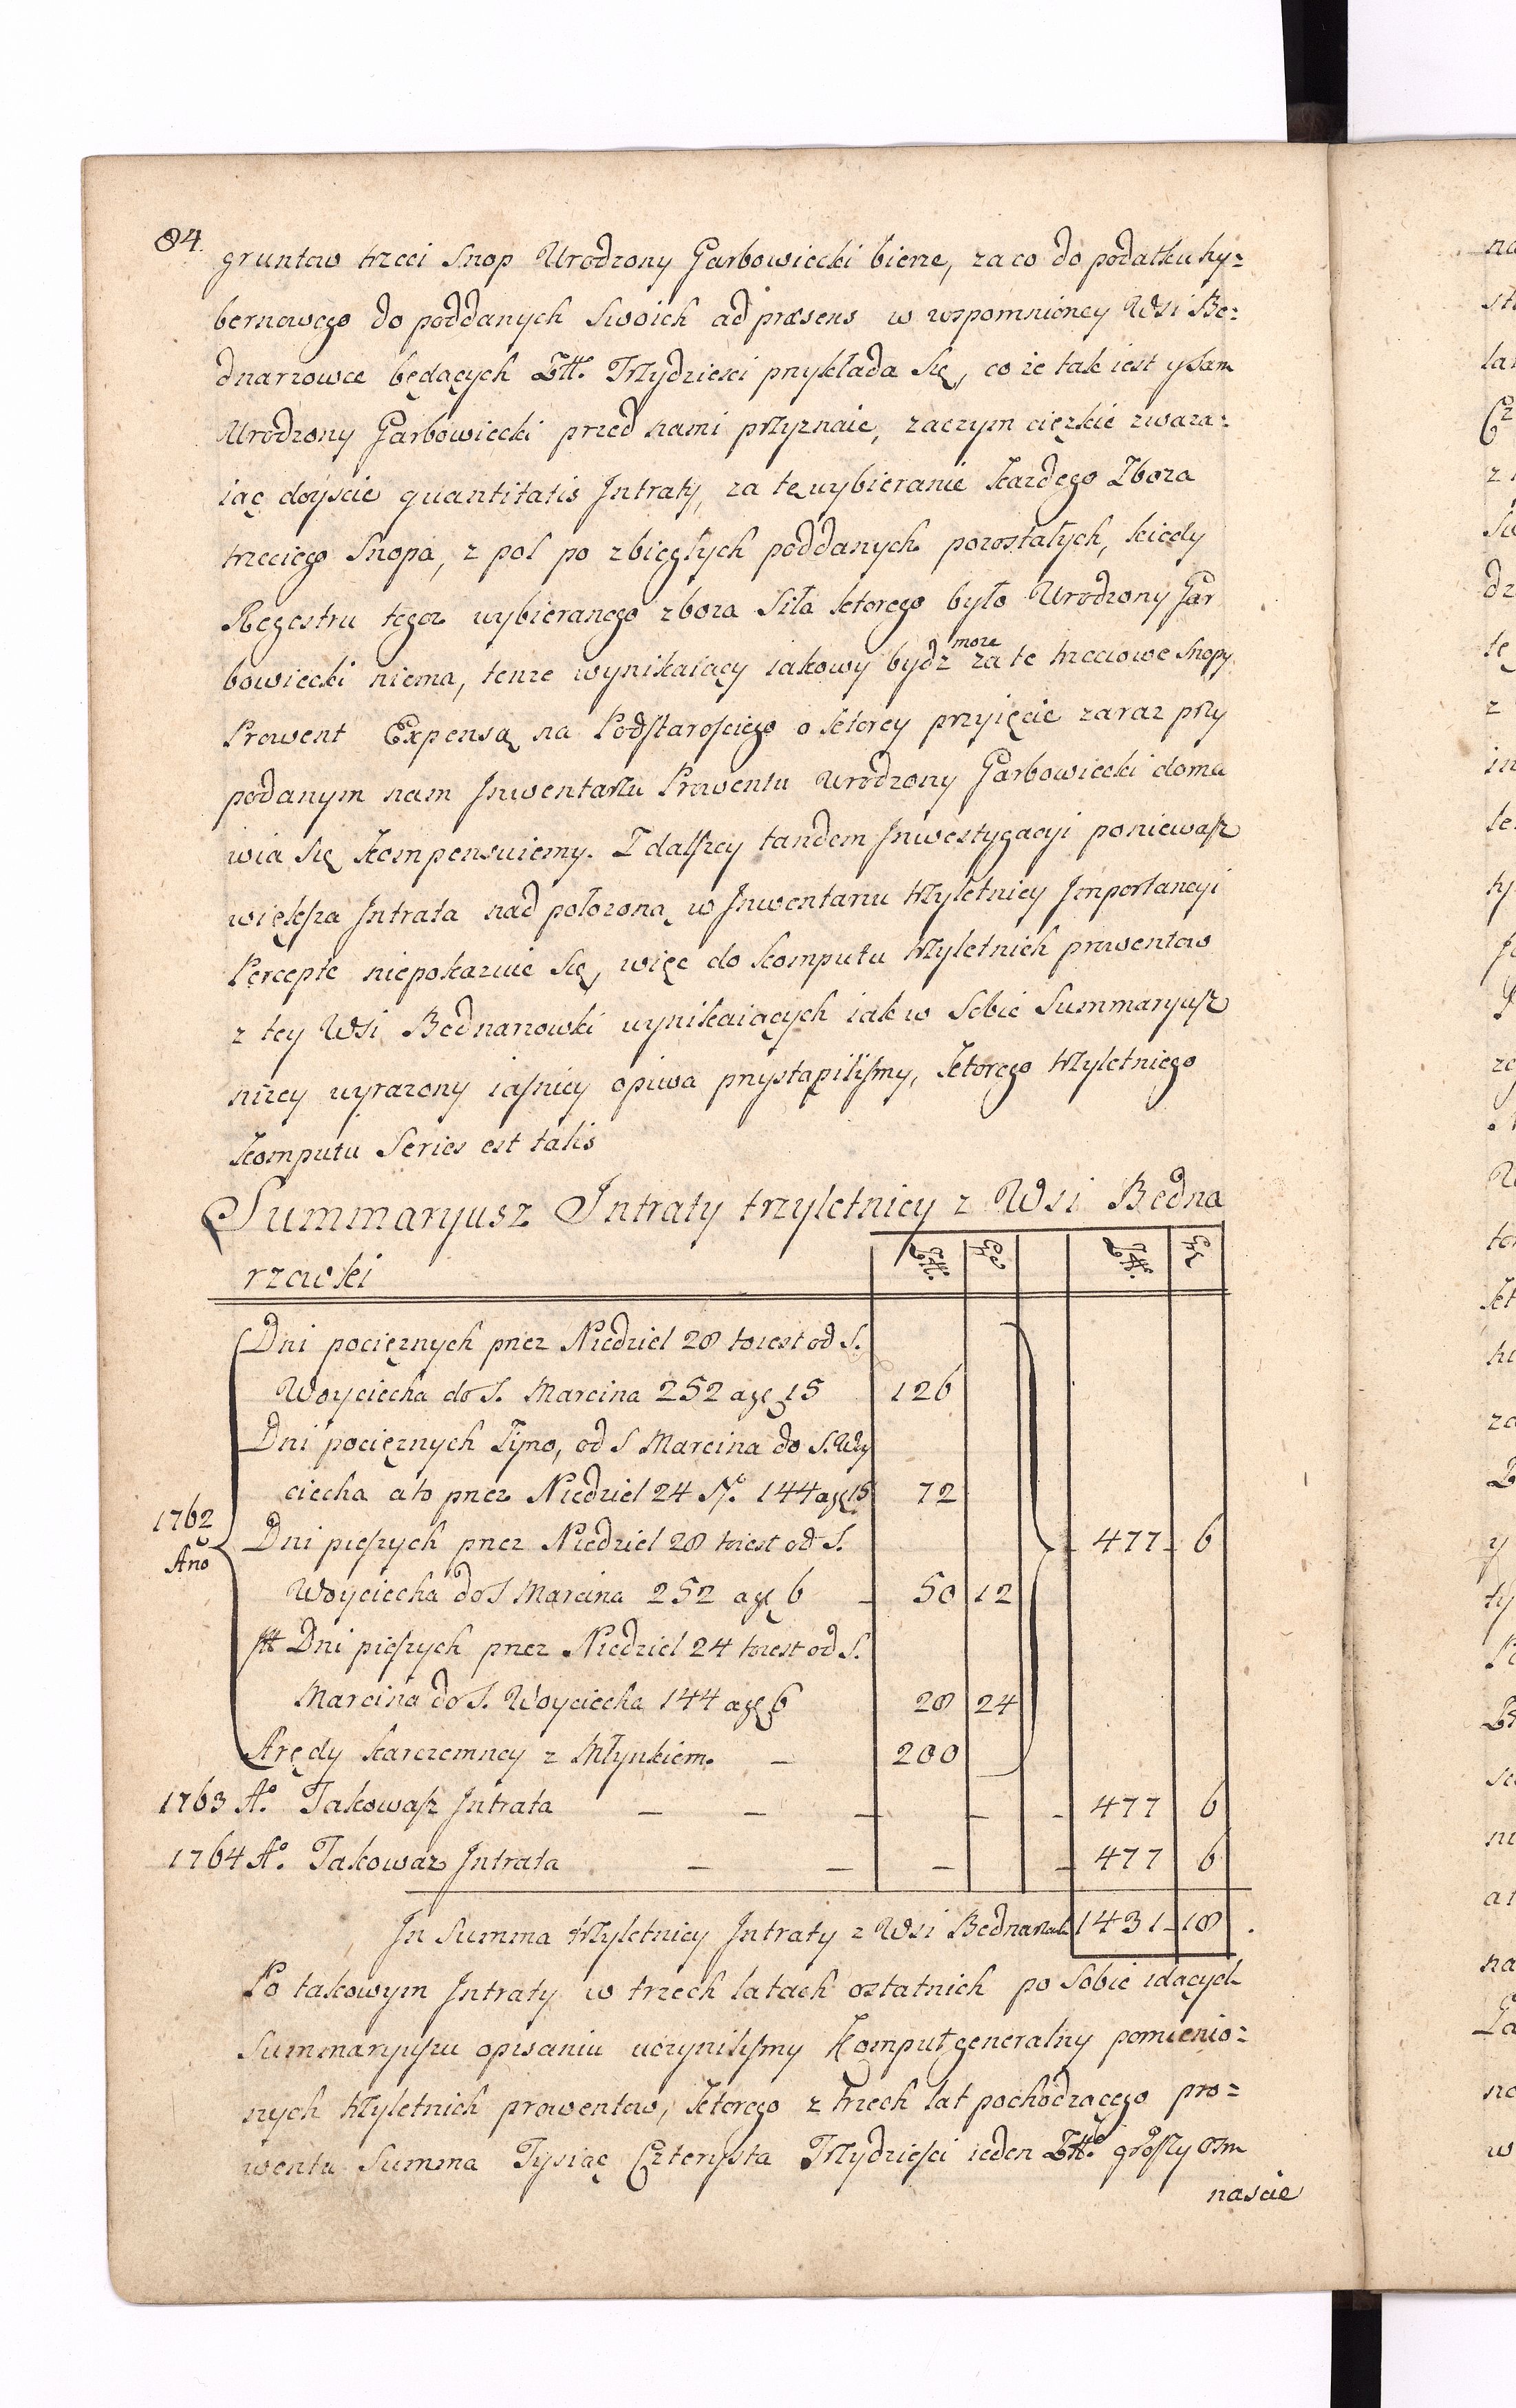 84.
gruntow trzeci Snop Urodzony Garbowiecki bierze, za co do podatku hy=
bernowego do poddanych Swoich ad præsens w wspomnioney Wsi Be=
dnarzowce będących Złł. Trzydziesci przykłada Się, co że tak iest y sam
Urodzony Garbowiecki przed nami przyznaie, zaczym cięzkie zwaza=
iąc doyscie quantitatis Jntraty, za tę wybieranie każdego Zboza
trzeciego Snopa, z pol po zbiegłych poddanych pozostałych, kiedy
Regestru tegoz wybieranego zboza Siła ktorego było Urodzony Gar
bowiecki niema, tenze wynikaiący iakowy bydz może za te trzeciowe Snopy
Prowent Expensą na Podstarosciego o ktorey przyięcie zaraz przy
podanym nam Jnwentarzu Prowentu Urodzony Garbowiecki doma
wia Się kompensuiemy. Z dalszey tandem Jnwestygacyi poniewasz
większa Jntrata nad połozoną w Jnwentarzu trzyletniey Jmportancyi
Percepte niepokazuie Się, więc do komputu trzyletnich prowentow
z tey Wsi Bednarzowki wynikaiących iak w Sobie Summaryusz
nizey wyrazony iasniey opiwa przystąpilismy, ktorego trzyletniego
komputu Series est talis
Summaryusz Jntraty trzyletniey z Wsi Bedna
rzowki Złł. Gr Złł. Gr
Dni pocięznych przez Niedziel 28 to iest od S.
Woyciecha do S. Marcina 252 a gr 15 126
Dni pocięznych Zimo, od S Marcina do S. Woy
ciecha a to przez Niedziel 24 No. 144 a gr 15 72
1762 Ano
Dni pieszych przez Niedziel 28 to iest od S. 477 6
Woyciecha do S Marcina 252 a gr 6 50 12
Dni pieszych przez Niedziel 24 to iest od S.
Marcina do S. Woyciecha 144 a gr 6 28 24
Arędy karczemney z Młynkiem. — 200
1763 Ao. Takowasz Jntrata — — — — — 477 6
1764 Ao. Takowaz Jntrata — — — — 477 6
Jn Summa trzyletniey Jntraty z Wsi 1431 18.
Po takowym Jntraty w trzech latach ostatnich po Sobie idących
Summaryuszu opisaniu uczynilismy Komput generalny pomienio=
nych trzyletnich prowentow, ktorego z trzech lat pochodzącego pro=
wentu Summa Tysiąc Czterysta Trzydziesci ieden Złł. groszy Osm
nascie